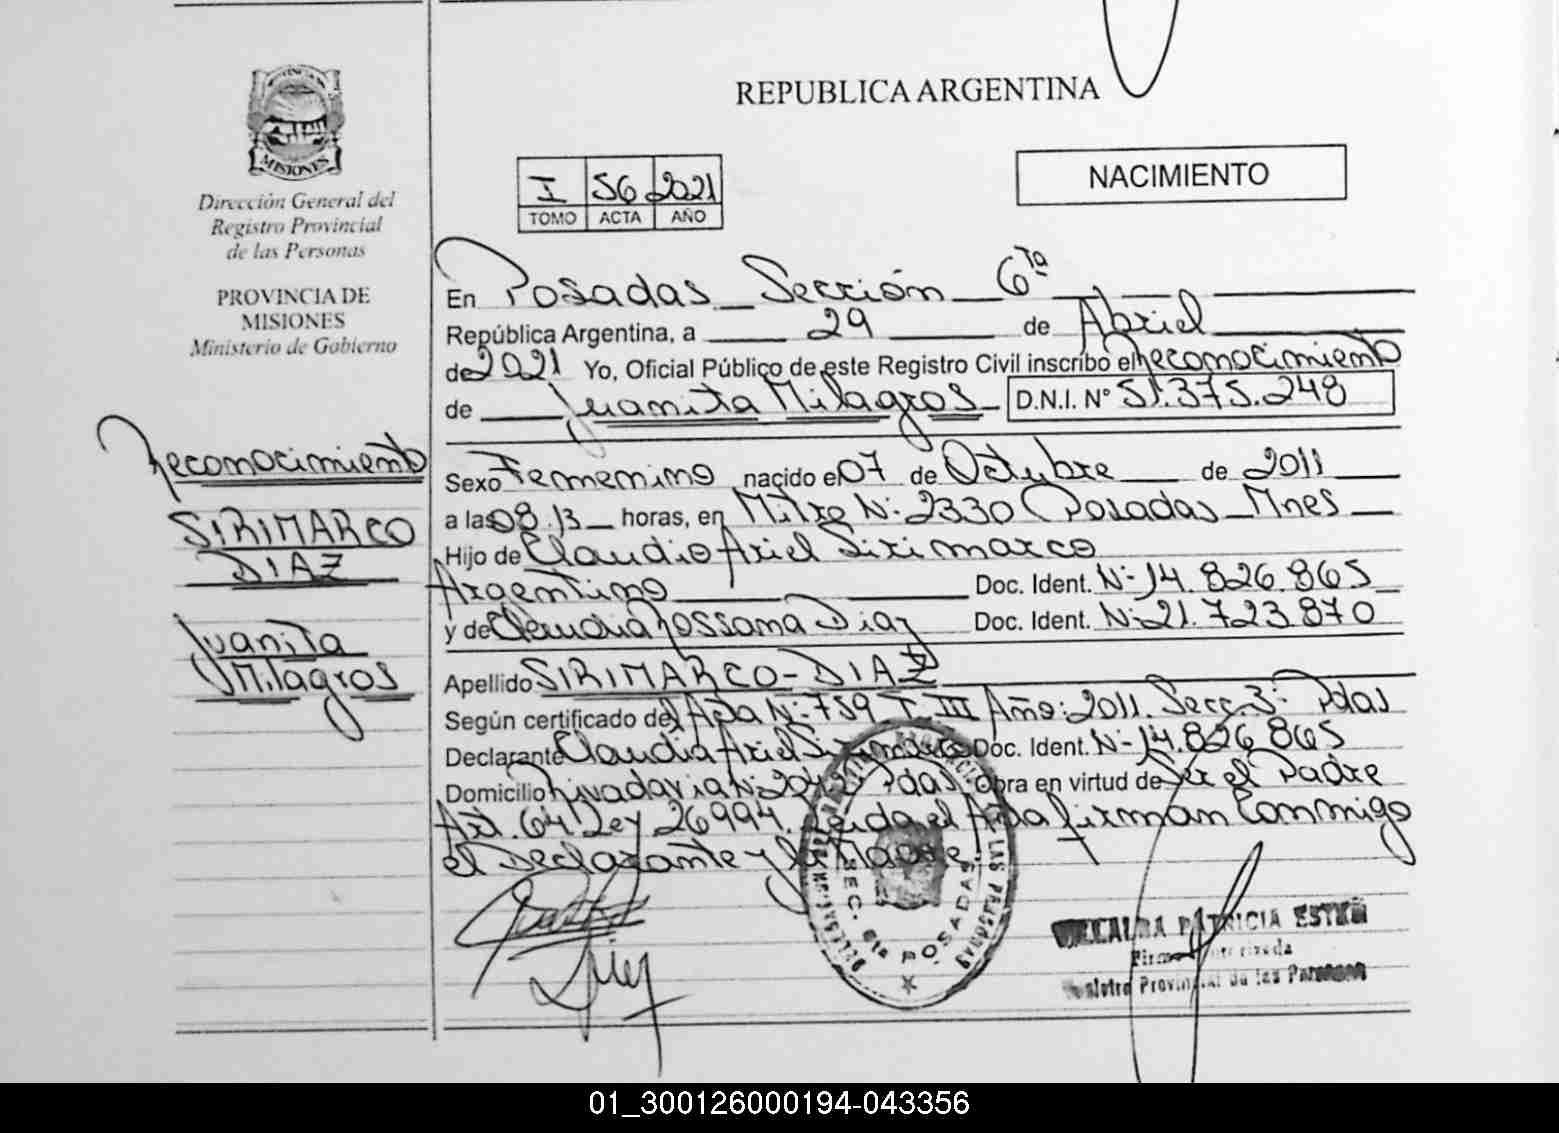 PROVINCIA DE
MISIONES
Dirección General del
Registro Provincial
de las Personas
PROVINCIA DE
MISIONES
Ministerio de Gobierno
Reconocimiento
SIRIMARCO
DIAZ
Juanita
Milagros
REPUBLICA ARGENTINA
NACIMIENTO
I 56 2021
TOMO ACTA AÑO
En Posadas Sección 6ta
República Argentina, a 29 de Abriel
de 2021 Yo, Oficial Público de este Registro Civil inscribo el Reconocimiento
de Juanita Milagros D.N.I. N° 51.375.248
Sexo Femenino nacido el 07 de Octubre de 2011
a las 08.13 horas, en Mitre N: 2330 Posadas Mnes
Hijo de Claudio Ariel Sirimarco
Argentino Doc. Ident. N- 14.826.865
y de Claudia Rossana Diaz Doc. Ident. N- 21.723.870
Apellido SIRIMARCO-DIAZ
Según certificado del Acta N: 759 T. III Año: 2011. Secc. 3: Pdas
Declarante Claudia Ariel Sirimarco Doc. Ident. N- 14.826.865
Domicilio Rivadavia N: Pdas Obra en virtud de Ser el Padre
Art. 64 Ley 26994. Leida el Acta firman Conmigo
el Declarante y la Madre.
SEC. 6ta POSADAS
VILLALBA PATRICIA ESTER
Firma Autorizada
Registro Provincial de las Personas
01_300126000194-043356